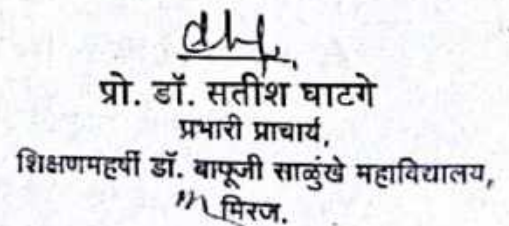 प्रो. डॉ. सतीश घाटगे
प्रभारी प्राचार्य,
शिक्षणमहर्षी डॉ. बापूजी साळुंखे महाविद्यालय,
मिरज.